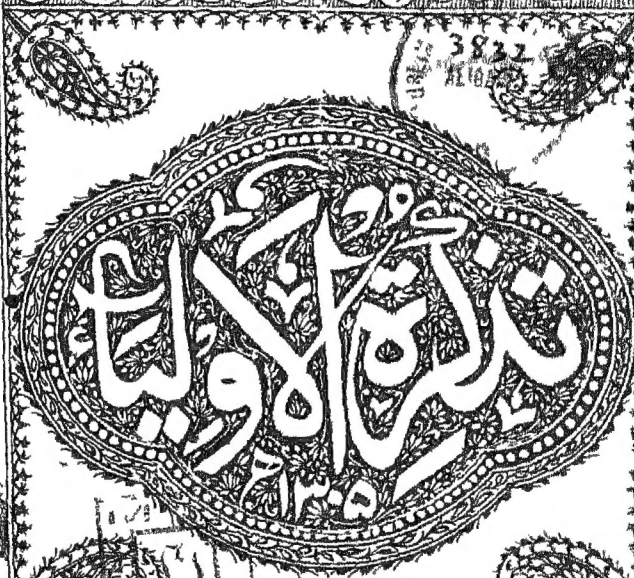 3832
تذكرة الاولياء
۱۳۰۵